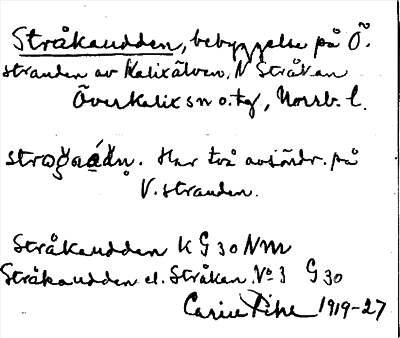 Stråkaudden, bebyggelse på Ö.
stranden av Kalixälven, N Stråkan
Överkalix sn o. tg, Norrb. l.
Har två avsöndr. på
V. stranden.
Stråkaudden K G 30 NM
Stråkaudden el. Stråkan No 3 G 30
Carin Pihl 1919-27